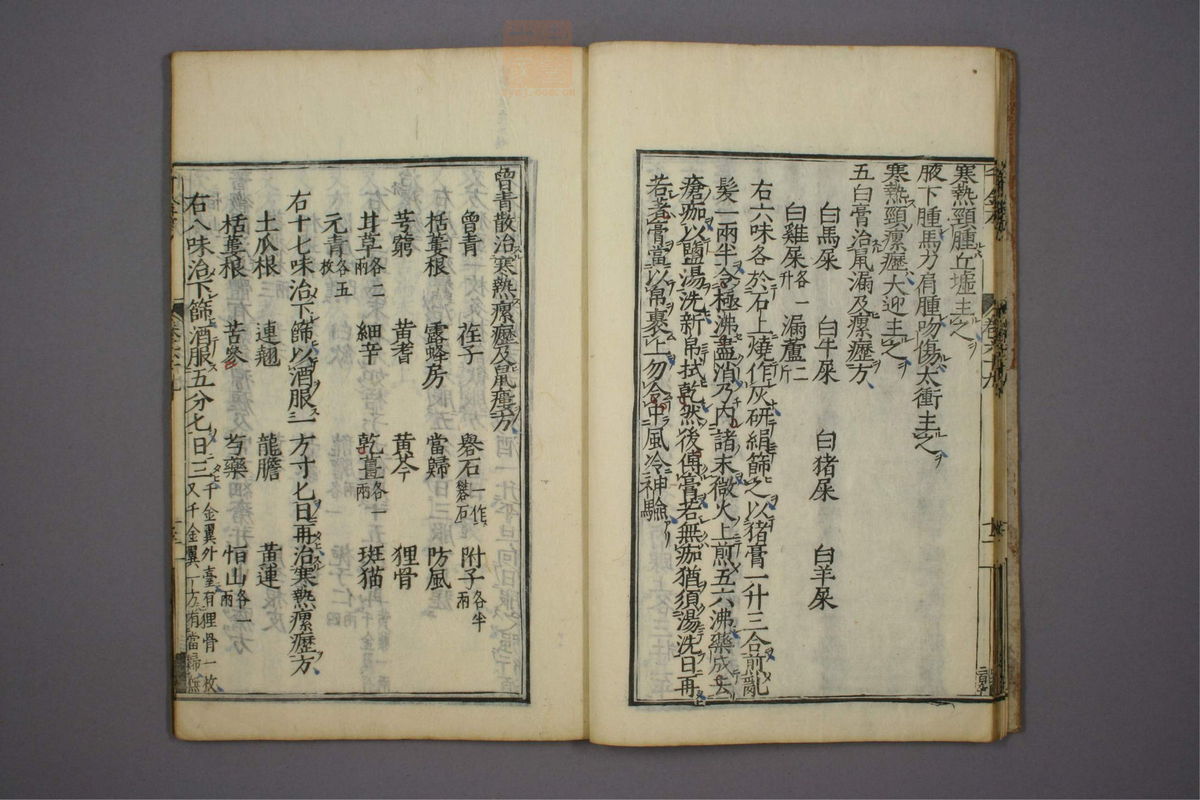 寒熱頸腫丘墟主之
腋下腫馬刀肩腫吻傷太衝主之
寒熱頸瘰癧大迎主之
五白膏治鼠漏及瘰癧方
白馬屎 白牛屎 白猪屎 白羊屎
白雞屎各一升 漏蘆二斤
右六味各於石上燒作灰研絹篩之以猪膏一升三合煎亂
髮一兩半令極沸盡消乃內諸末微火上煎五六沸藥成去
瘡痂以鹽湯洗新帛拭乾然後傅膏若無痂猶須湯洗日再
若著膏當以帛裹上勿令中風冷神驗
曾青散治寒熱瘰癧及鼠瘻方
曾青 荏子 礜石一作礬石 附子各半兩
栝蔞根 露蜂房 當歸 防風
芎藭 黃耆 黃芩 狸骨
甘草各二兩 細辛 乾薑各一兩 斑猫
元青各五枚
右十七味治下篩以酒服一方寸匕日再治寒熱瘰癧方
土瓜根 連翹 龍膽 黃連
栝蔞根 苦參 芍藥 恒山各一兩
右八味治下篩酒服五分匕日三千金翼外臺有狸骨一枚又千金翼一方有當歸無